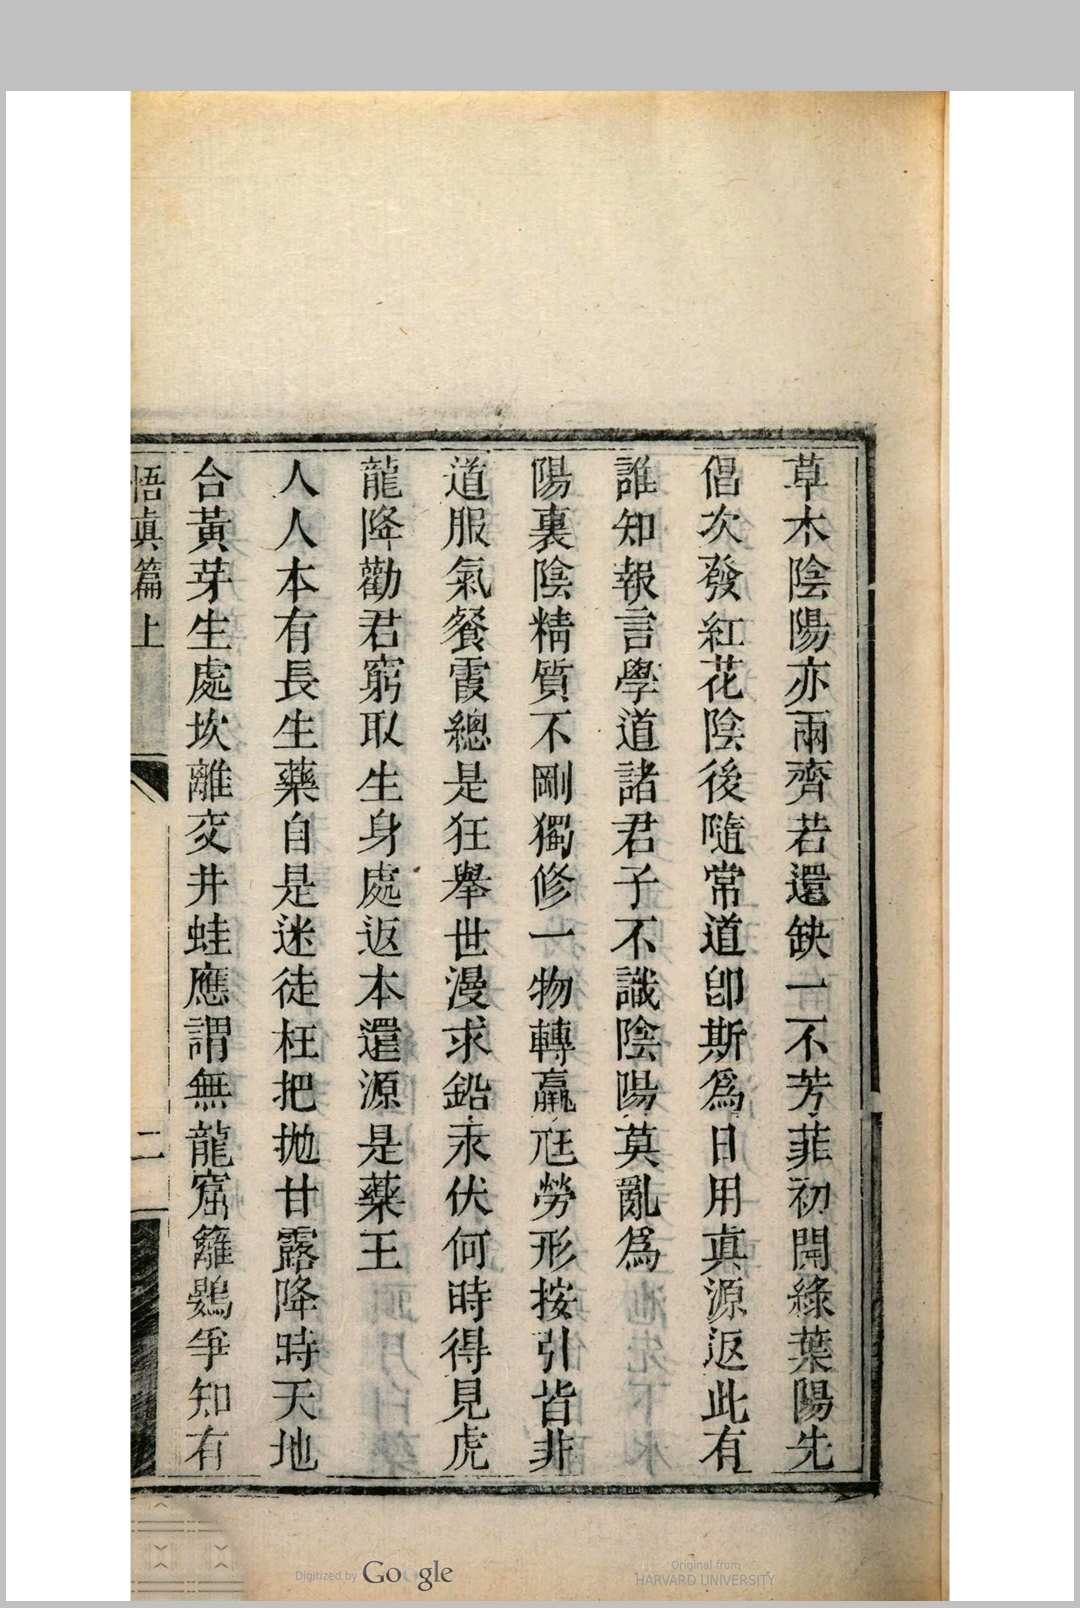 草木陰陽亦兩齊若還缺一不芳菲初開綠葉陽先
倡次發紅花陰後隨常道卽斯爲日用眞源返此有
誰知報言學道諸君子不識陰陽莫亂爲
陽裏陰精質不剛獨修一物轉羸尩勞形按引皆非
道服氣餐霞總是狂舉世漫求鉛汞伏何時得見虎
龍降勸君窮取生身處返本還源是藥王
人人本有長生藥自是迷徒枉把拋甘露降時天地
合黃芽生處坎離交井蛙應謂無龍窟籬鷃爭知有
悟眞篇上
二
Digitized by Google
Original from
HARVARD UNIVERSITY